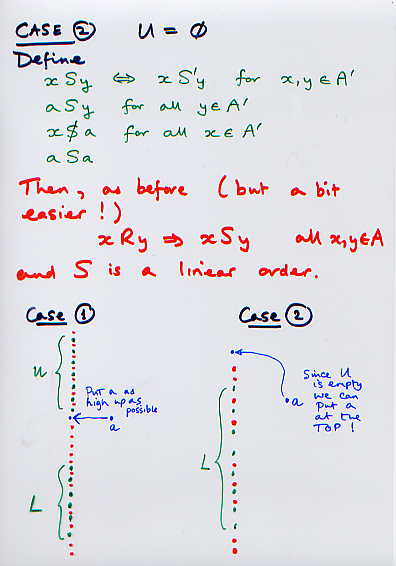 CASE ② U = ∅
Define
x S y ⇔ x S' y for x, y ∈ A'
a S y for all y ∈ A'
x $̸ a for all x ∈ A'
a S a
Then, as before (but a bit
easier!)
x R y ⇒ x S y all x, y ∈ A
and S is a linear order.
Case ①
U
Put a as
high up as
possible
a
L
Case ②
Since U
is empty
we can
put a
at the
TOP!
a
L